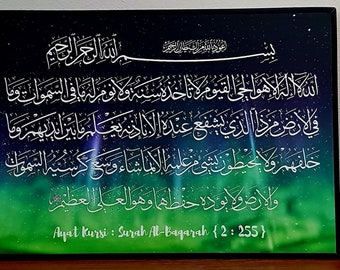 اعوذ بالله من الشيطان الرجيم
بسم الله الرحمن الرحيم
الله لا اله الا هو الحي القيوم لا تاخذه سنة ولا نوم له ما في السموات وما
في الارض من ذا الذي يشفع عنده الا باذنه يعلم ما بين ايديهم وما
خلفهم ولا يحيطون بشيء من علمه الا بما شاء وسع كرسيه السموات
والارض ولا يوده حفظهما وهو العلي العظيم
Ayat Kursi : Surah Al-Baqarah { 2 : 255 }